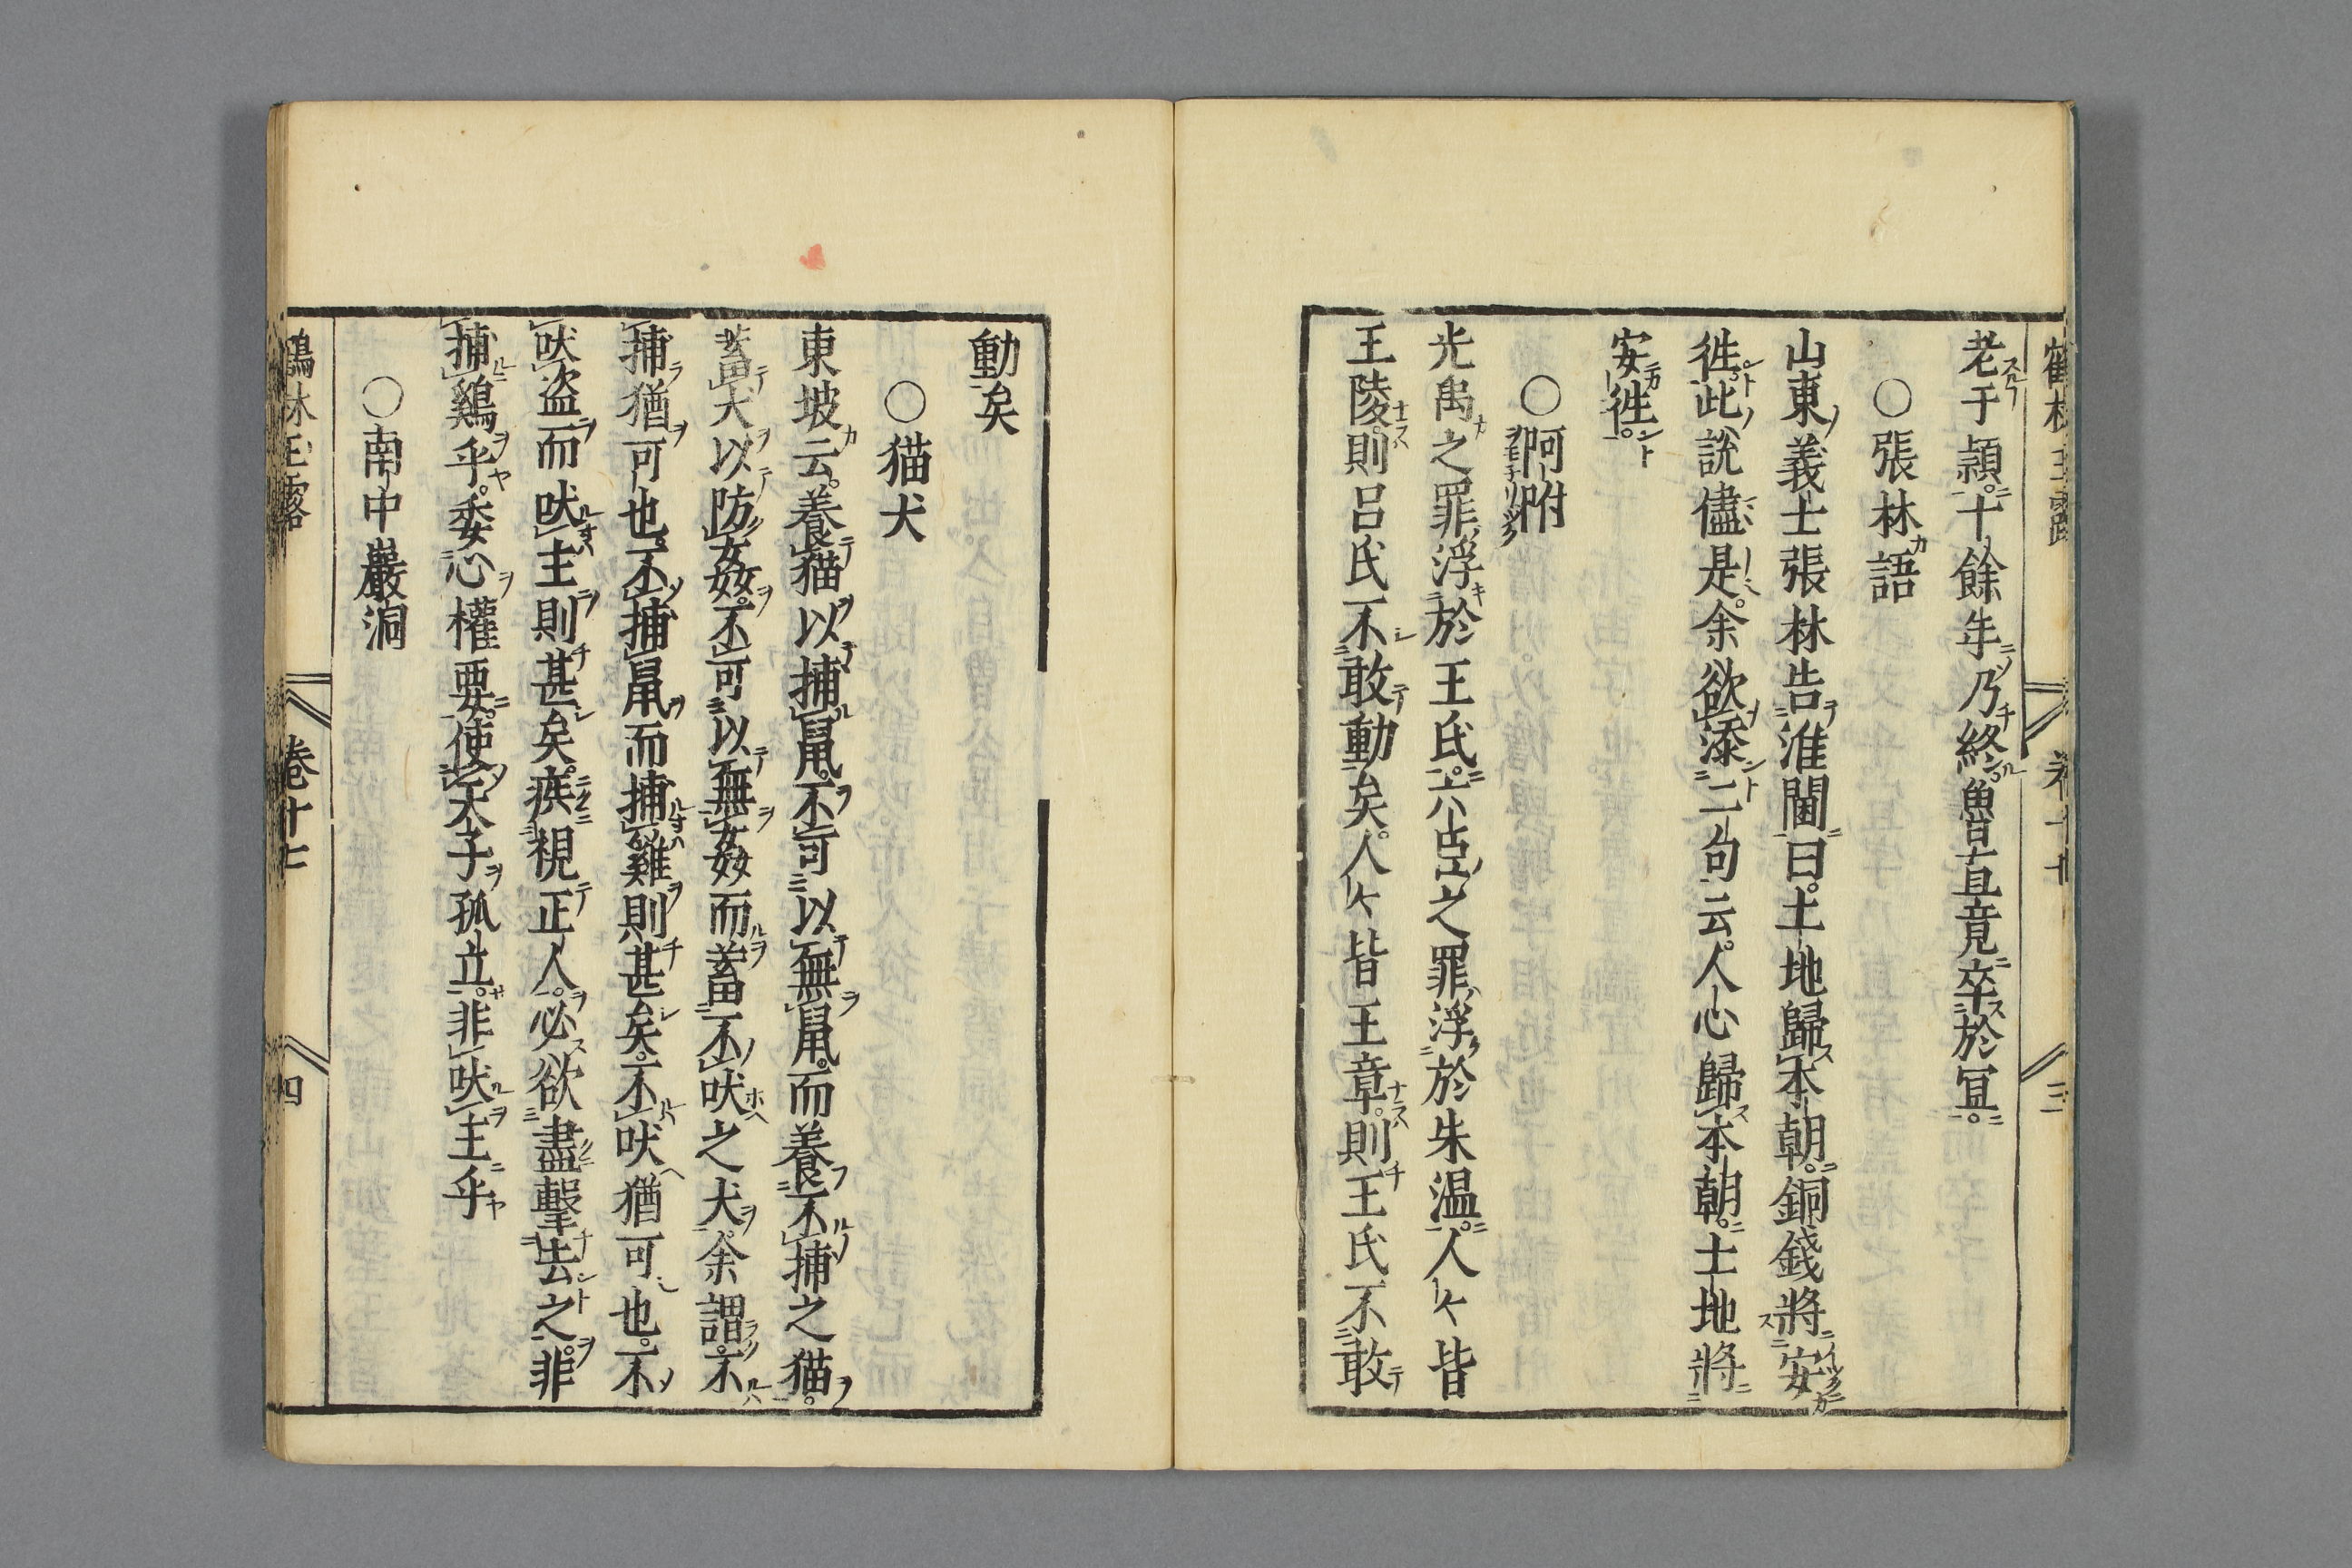 老于頴十餘年乃終魯直竟卒於冝
○張林語
山東義士張林告淮閫曰土地歸本朝銅錢將安
徃此說儘是余欲添二句云人心歸本朝土地將
安徃
○阿附
光禹之罪浮於王氏六臣之罪浮於朱温人々皆
王陵則呂氏不敢動矣人々皆王章則王氏不敢
動矣
○猫犬
東坡云養猫以捕鼠不可以無鼠而養不捕之猫
蓄犬以防姦不可以無姦而蓄不吠之犬余謂不
捕猶可也不捕鼠而捕雞則甚矣不吠猶可也不
吠盗而吠主則甚矣疾視正人必欲盡擊去之非
捕鷄乎委心權要使天子孤立非吠主乎
○南中巖洞
鶴林玉露 卷十七 四